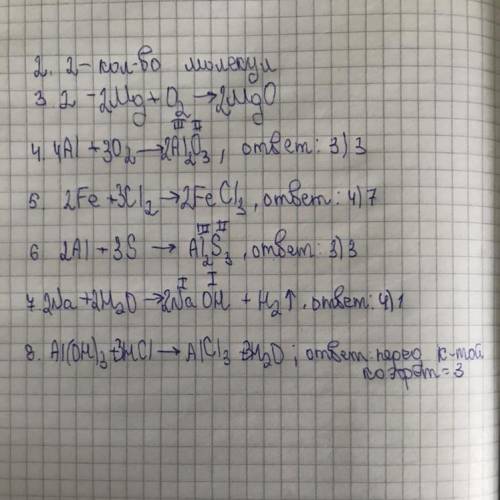 2. 2 - кол-во молекул
3. 2 - 2Mg + O₂ → 2MgO
III II
4. 4Al + 3O₂ → 2Al₂O₃, ответ: 3) 3
5. 2Fe + 3Cl₂ → 2FeCl₃, ответ: 4) 7
III II
6 2Al + 3S → Al₂S₃, ответ: 3) 3
I I
7. 2Na + 2H₂O → 2NaOH + H₂↑. ответ: 4) 1
8. Al(OH)₃ + 3HCl → AlCl₃ + 3H₂O; ответ: перед к-той
коэфт = 3